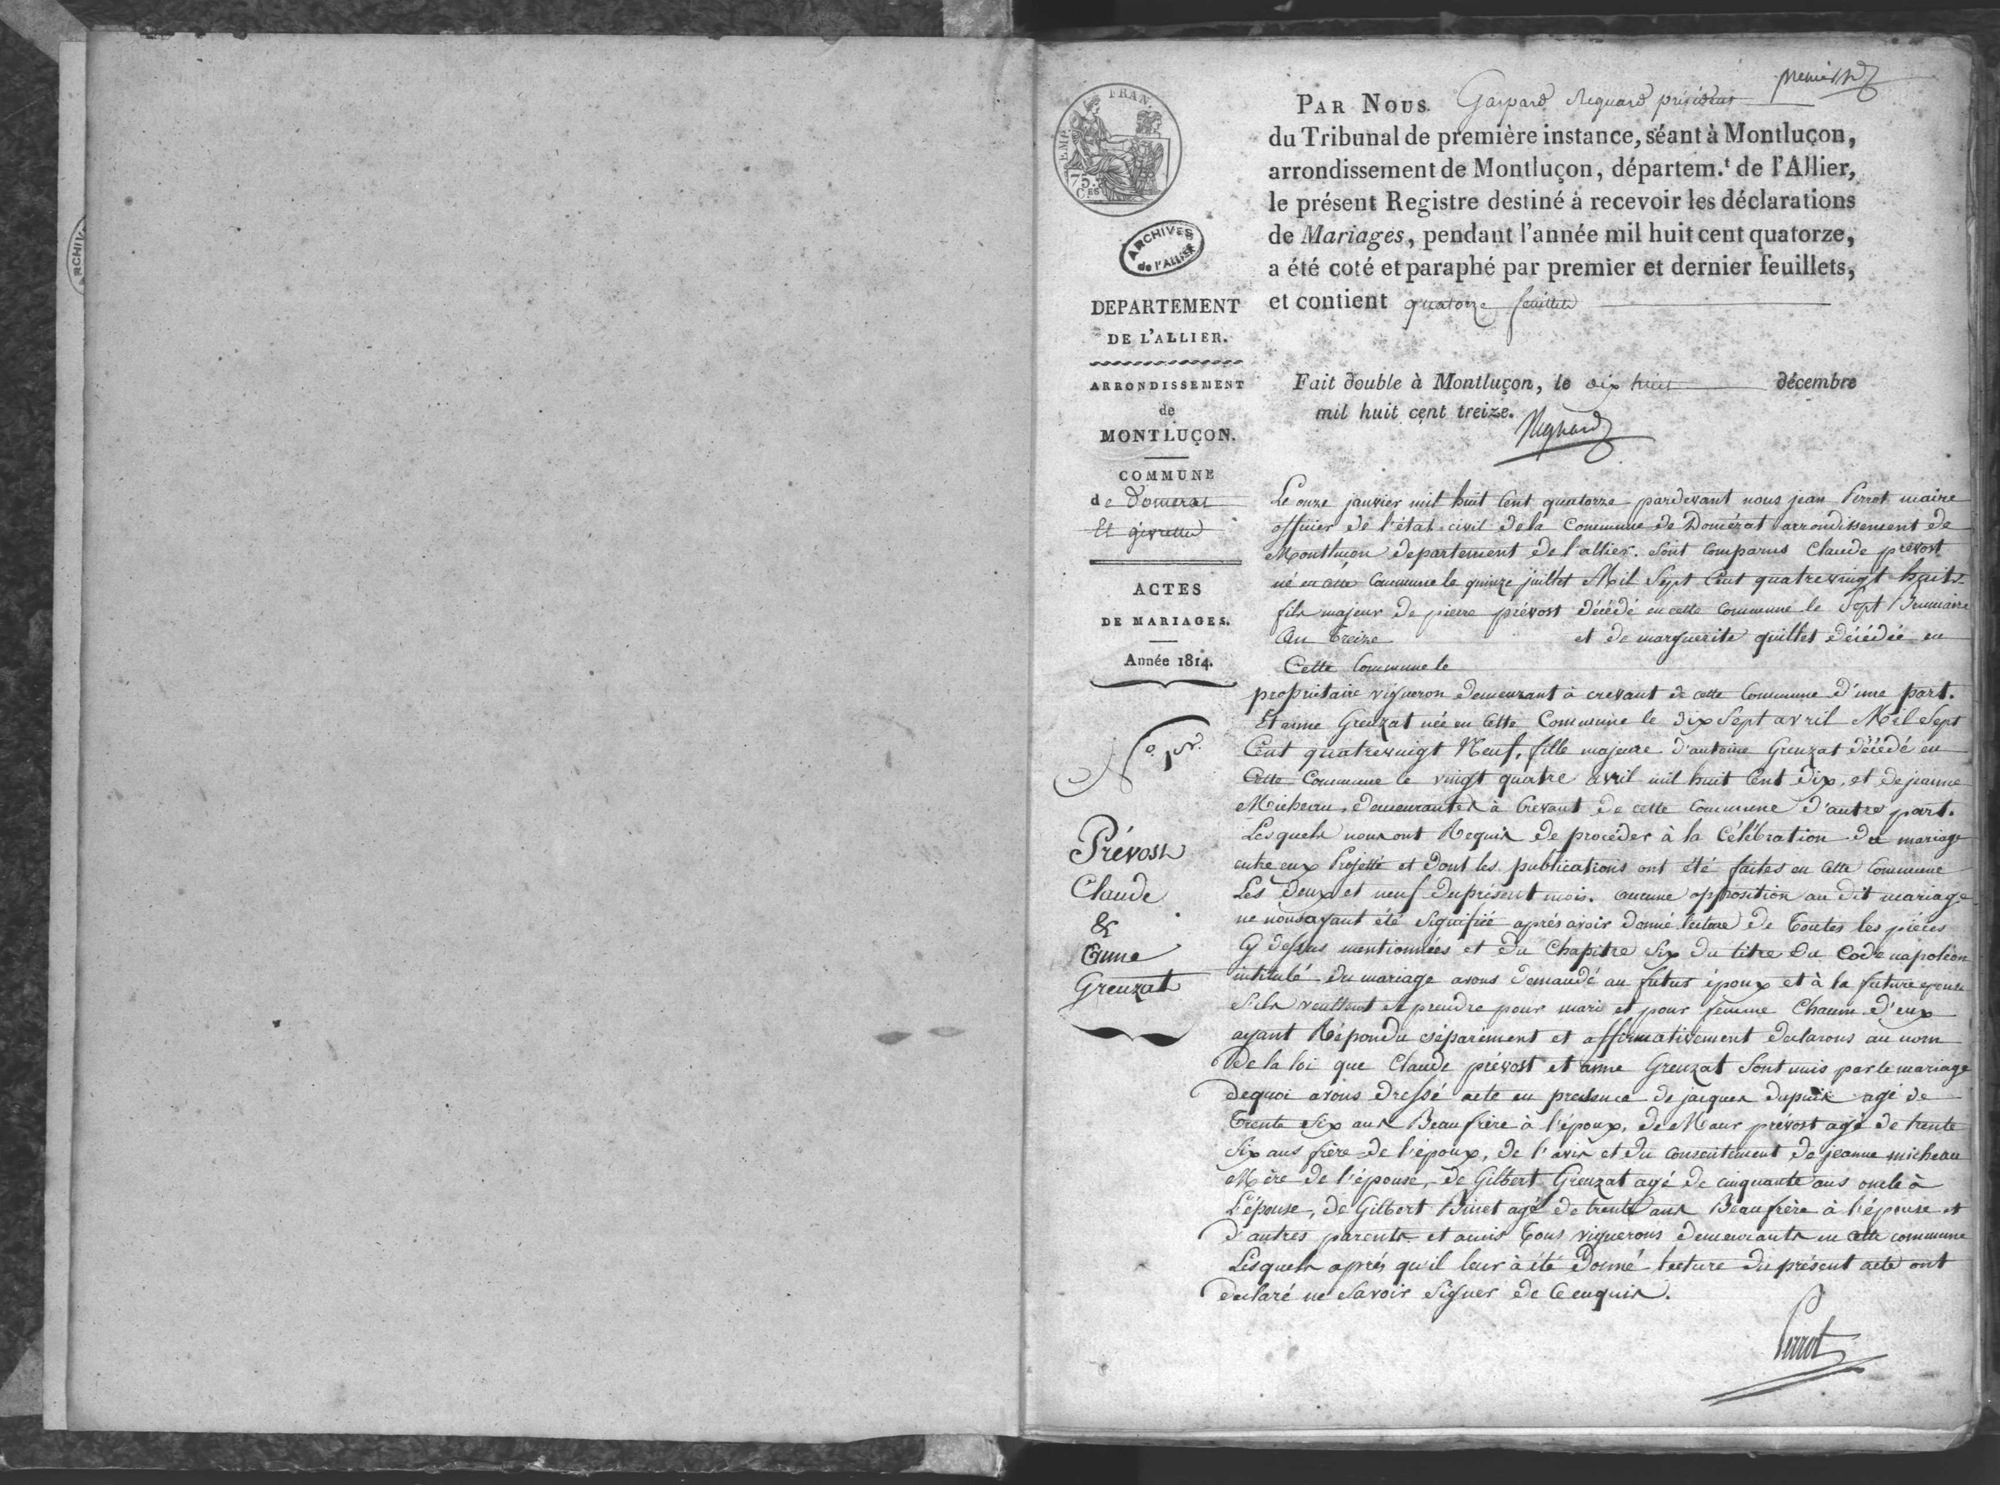 premier
EMP. FRAN.
75.
C.ES
ARCHIVES
de l'ALLIER
DEPARTEMENT
DE L'ALLIER.
ARRONDISSEMENT
de
MONTLUÇON.
COMMUNE
de Domérat
Et givrette
ACTES
DE MARIAGES.
Année 1814.
PAR NOUS Gaspard Regnard président
du Tribunal de première instance, séant à Montluçon,
arrondissement de Montluçon, départem.t de l'Allier,
le présent Registre destiné à recevoir les déclarations
de Mariages, pendant l'année mil huit cent quatorze,
a été coté et paraphé par premier et dernier feuillets,
et contient quatorze feuillets
Fait double à Montluçon, le dix huit décembre
mil huit cent treize.
Regnard
N.o 1er.
Prévost
Claude
&
Anne
Greuzat
Le onze janvier mil huit Cent quatorze pardevant nous jean Perrot maire
officier de l'état civil de la Commune de Domérat arrondissement de
Montluçon departement de l'allier. sont comparus Claude prévost
né en cette Commune le quinze juillet Mil Sept Cent quatrevingt huit.
fils majeur de pierre prévost décédé en cette commune le Sept Brumaire
An treize et de marguerite quillet décédée en
Cette Commune le
propriétaire vigneron demeurant à crevant de cette Commune d'une part.
Et anne Greuzat née en Cette Commune le dix Sept avril Mil Sept
Cent quatrevingt Neuf, fille majeure d'antoine Greuzat décédé en
Cette Commune le vingt quatre avril mil huit Cent dix, et de jeanne
Micheau, demeurantes à Crevant de cette Commune d'autre part.
Lesquels nous ont Requis de procéder à la Célébration du mariage
entre eux Projetté et dont les publications ont été faites en Cette Commune
Les deux et neuf du présent mois. aucune opposition au dit mariage
ne nous ayant été signifiée après avoir donné lecture de Toutes les pièces
Cy dessus mentionnées et du Chapitre Six du titre du Code napoléon
intitulé du mariage avons demandé au futur époux et à la future epouse
s'ils veullent se prendre pour mari et pour femme Chacun d'eux
ayant Répondu séparément et affirmativement declarons au nom
de la loi que Claude prévost et anne Greuzat sont unis par le mariage
dequoi avons dressé acte en presence de jacques dupuis agé de
Trente Six ans Beaufrère à l'époux, de Maur prévost agé de trente
Six ans frère de l'époux, de l'avis et du consentement de jeanne micheau
Mère de l'épouse, de Gilbert Greuzat agé de cinquante ans oncle à
L'épouse, de Gilbert Binet agé de trente ans Beaufrère à l'épouse et
d'autres parents et amis Tous vignerons demeurants en cette commune
Lesquels après qu'il leur à été donné lecture du présent acte ont
declaré ne savoir signer de Ce enquis.
Perrot